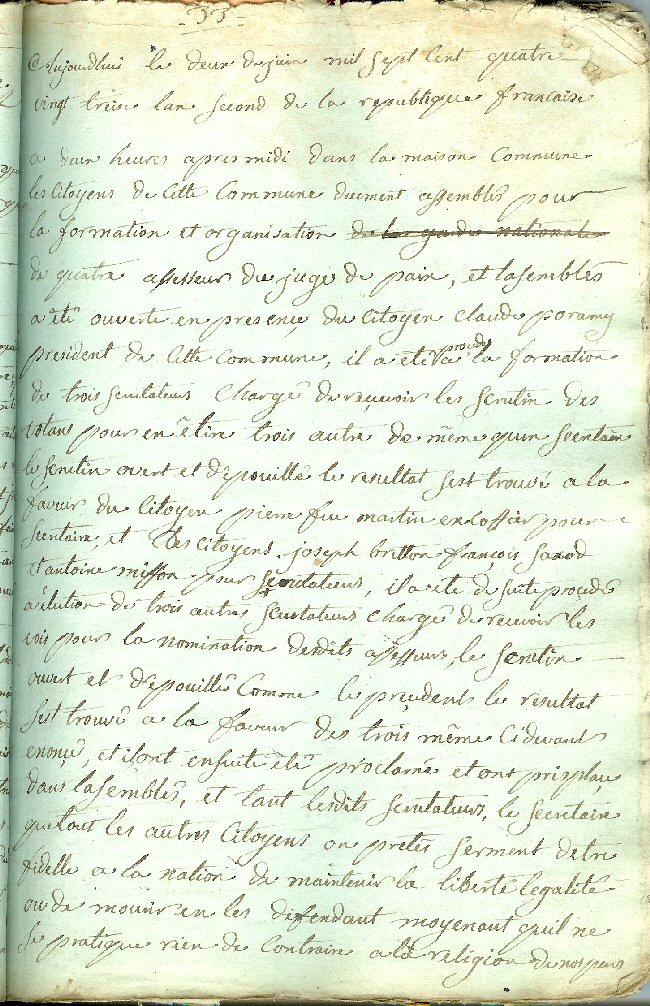 33
Aujourdhui le deux de juin mil sept cent quatre
vingt treise lan second de la republique francaise
a deux heures apres midi dans la maison Commune
les Citoyens de Cette Commune duement assemblés pour
la formation et organisation de la garde nationale
de quatre assesseur du juge de paix, et lasemblés
a été ouverte en presence du Citoyen Claude
president de Cette Commune, il a été procedé a la formation
de trois scrutateurs Chargé de reçevoir les scrutin des
votans pour en élire trois autre de même quun secretaire
le scrutin overt et dépouillé le resultat sest trouvé a la
faveur du Citoyen pierre feu martin pour
secretaire, et des Citoyens joseph britton françois
et antoine misson pour scrutateurs, il a été de suite procedé
a élection de trois autres scrutateurs chargé de recevoir les
vois pour la nomination desdits assesseurs, le scrutin
ouvert et dépouillé Comme le preçedent le resultat
sest trouvé a la faveur des trois même Cidevant
enonçé, et ils ont ensuite été proclamés et ont pris plaçe
dans lasemblés, et tant lesdits scrutateurs, le secretaire
que tout les autres Citoyens on pretés serment detre
fidelle a la nation de maintenir la liberté legalité
ou de mourir en les defendant moyenant quil ne
se pratique rien de Contraire a la religion de nos peres